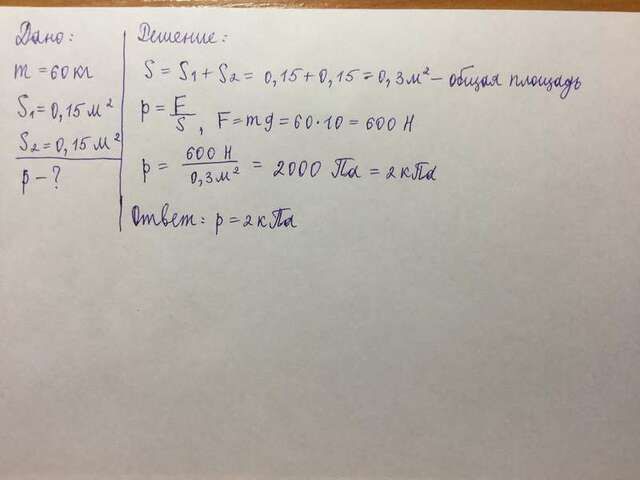 Дано:
m = 60 кг
S₁ = 0,15 м²
S₂ = 0,15 м²
p – ?
Решение:
S = S₁ + S₂ = 0,15 + 0,15 = 0,3 м² – общая площадь
p = F/S, F = mg = 60·10 = 600 Н
p = 600 Н/0,3 м² = 2000 Па = 2 кПа
Ответ: p = 2 кПа